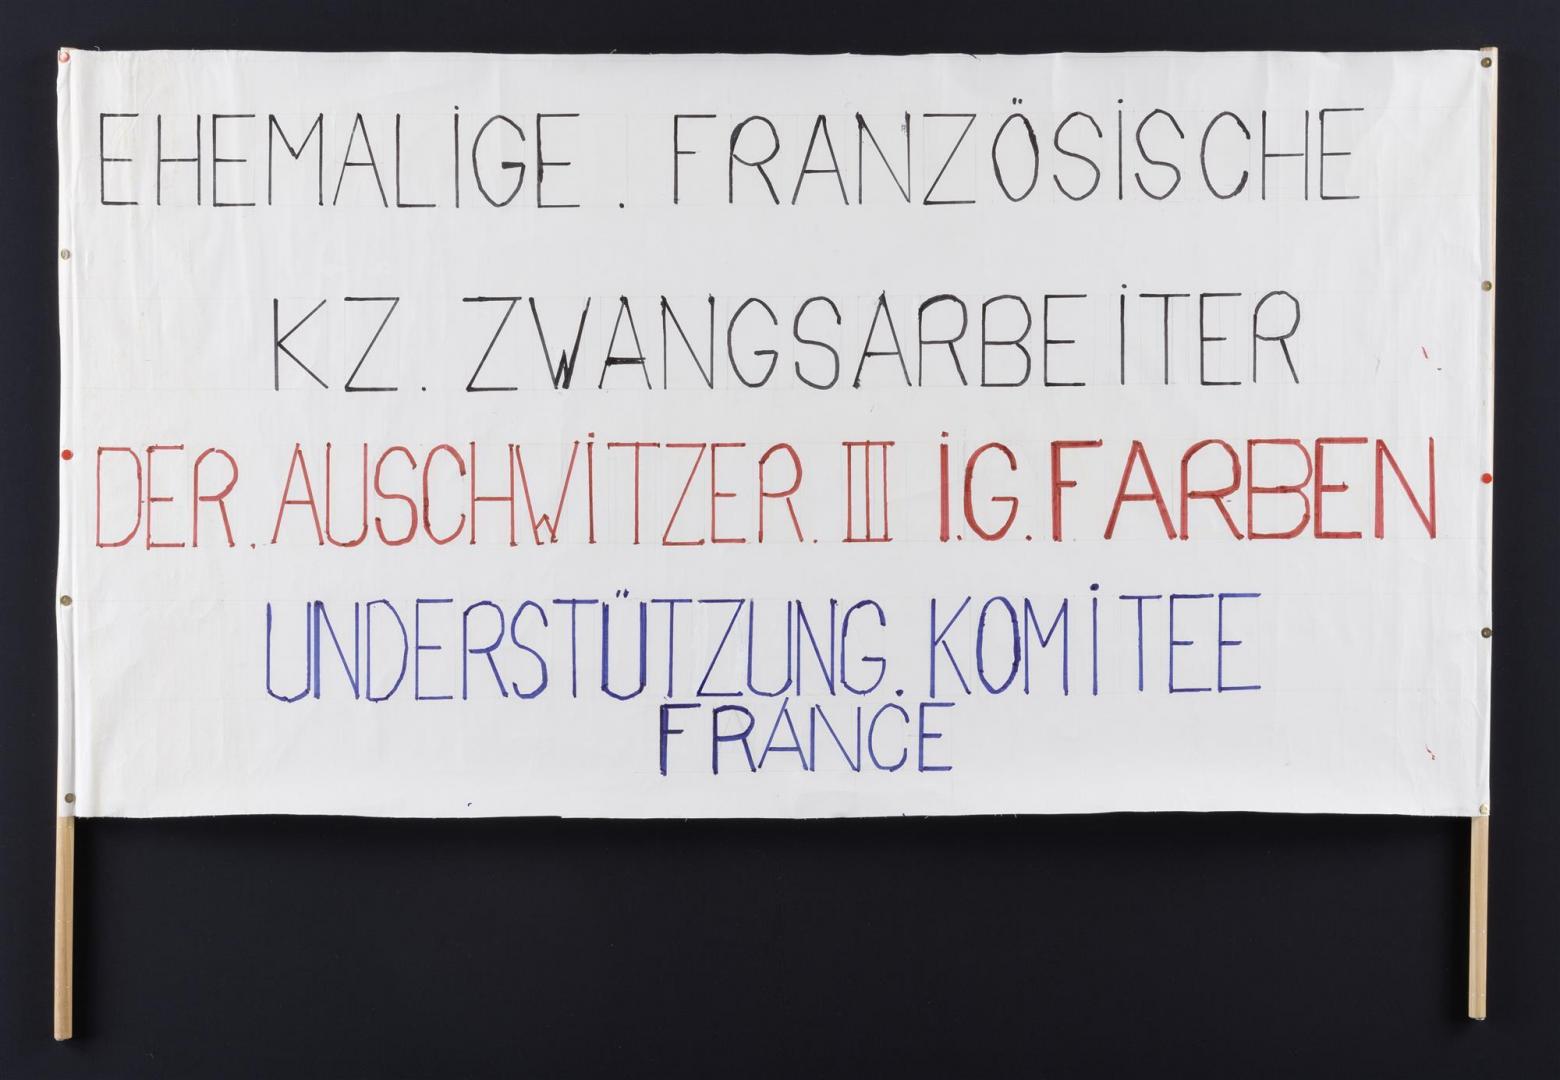 EHEMALİGE. FRANZÖSİSCHE
KZ. ZWANGSARBEİTER
DER. AUSCHWİTZER. III İ.G. FARBEN
UNDERSTÜTZUNG. KOMİTEE
FRANCE